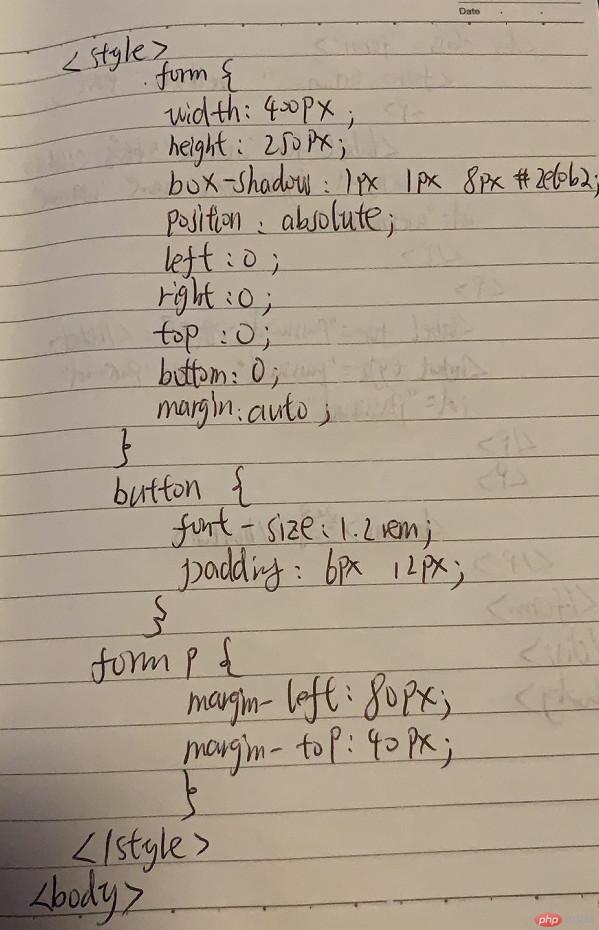 Date
<style>
.form {
width: 400px;
height: 250px;
box-shadow: 1px 1px 8px
position: absolute;
left: 0;
right: 0;
top: 0;
bottom: 0;
margin: auto;
}
button {
font-size: 1.2rem;
padding: 6px 12px;
}
form p {
margin-left: 80px;
margin-top: 40px;
}
</style>
<body>
php